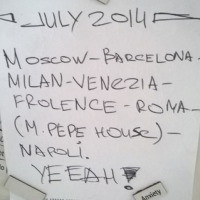 JULY 2014
MOSCOW-BARCELONA-
MILAN-VENEZIA-
FROLENCE-ROMA-
(M.PEPE HOUSE)-
NAPOLI.
YEEEAH!
Anxiety